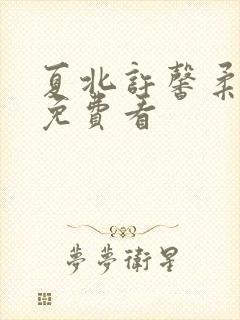 夏北許馨柔
免費看
夢夢衛星